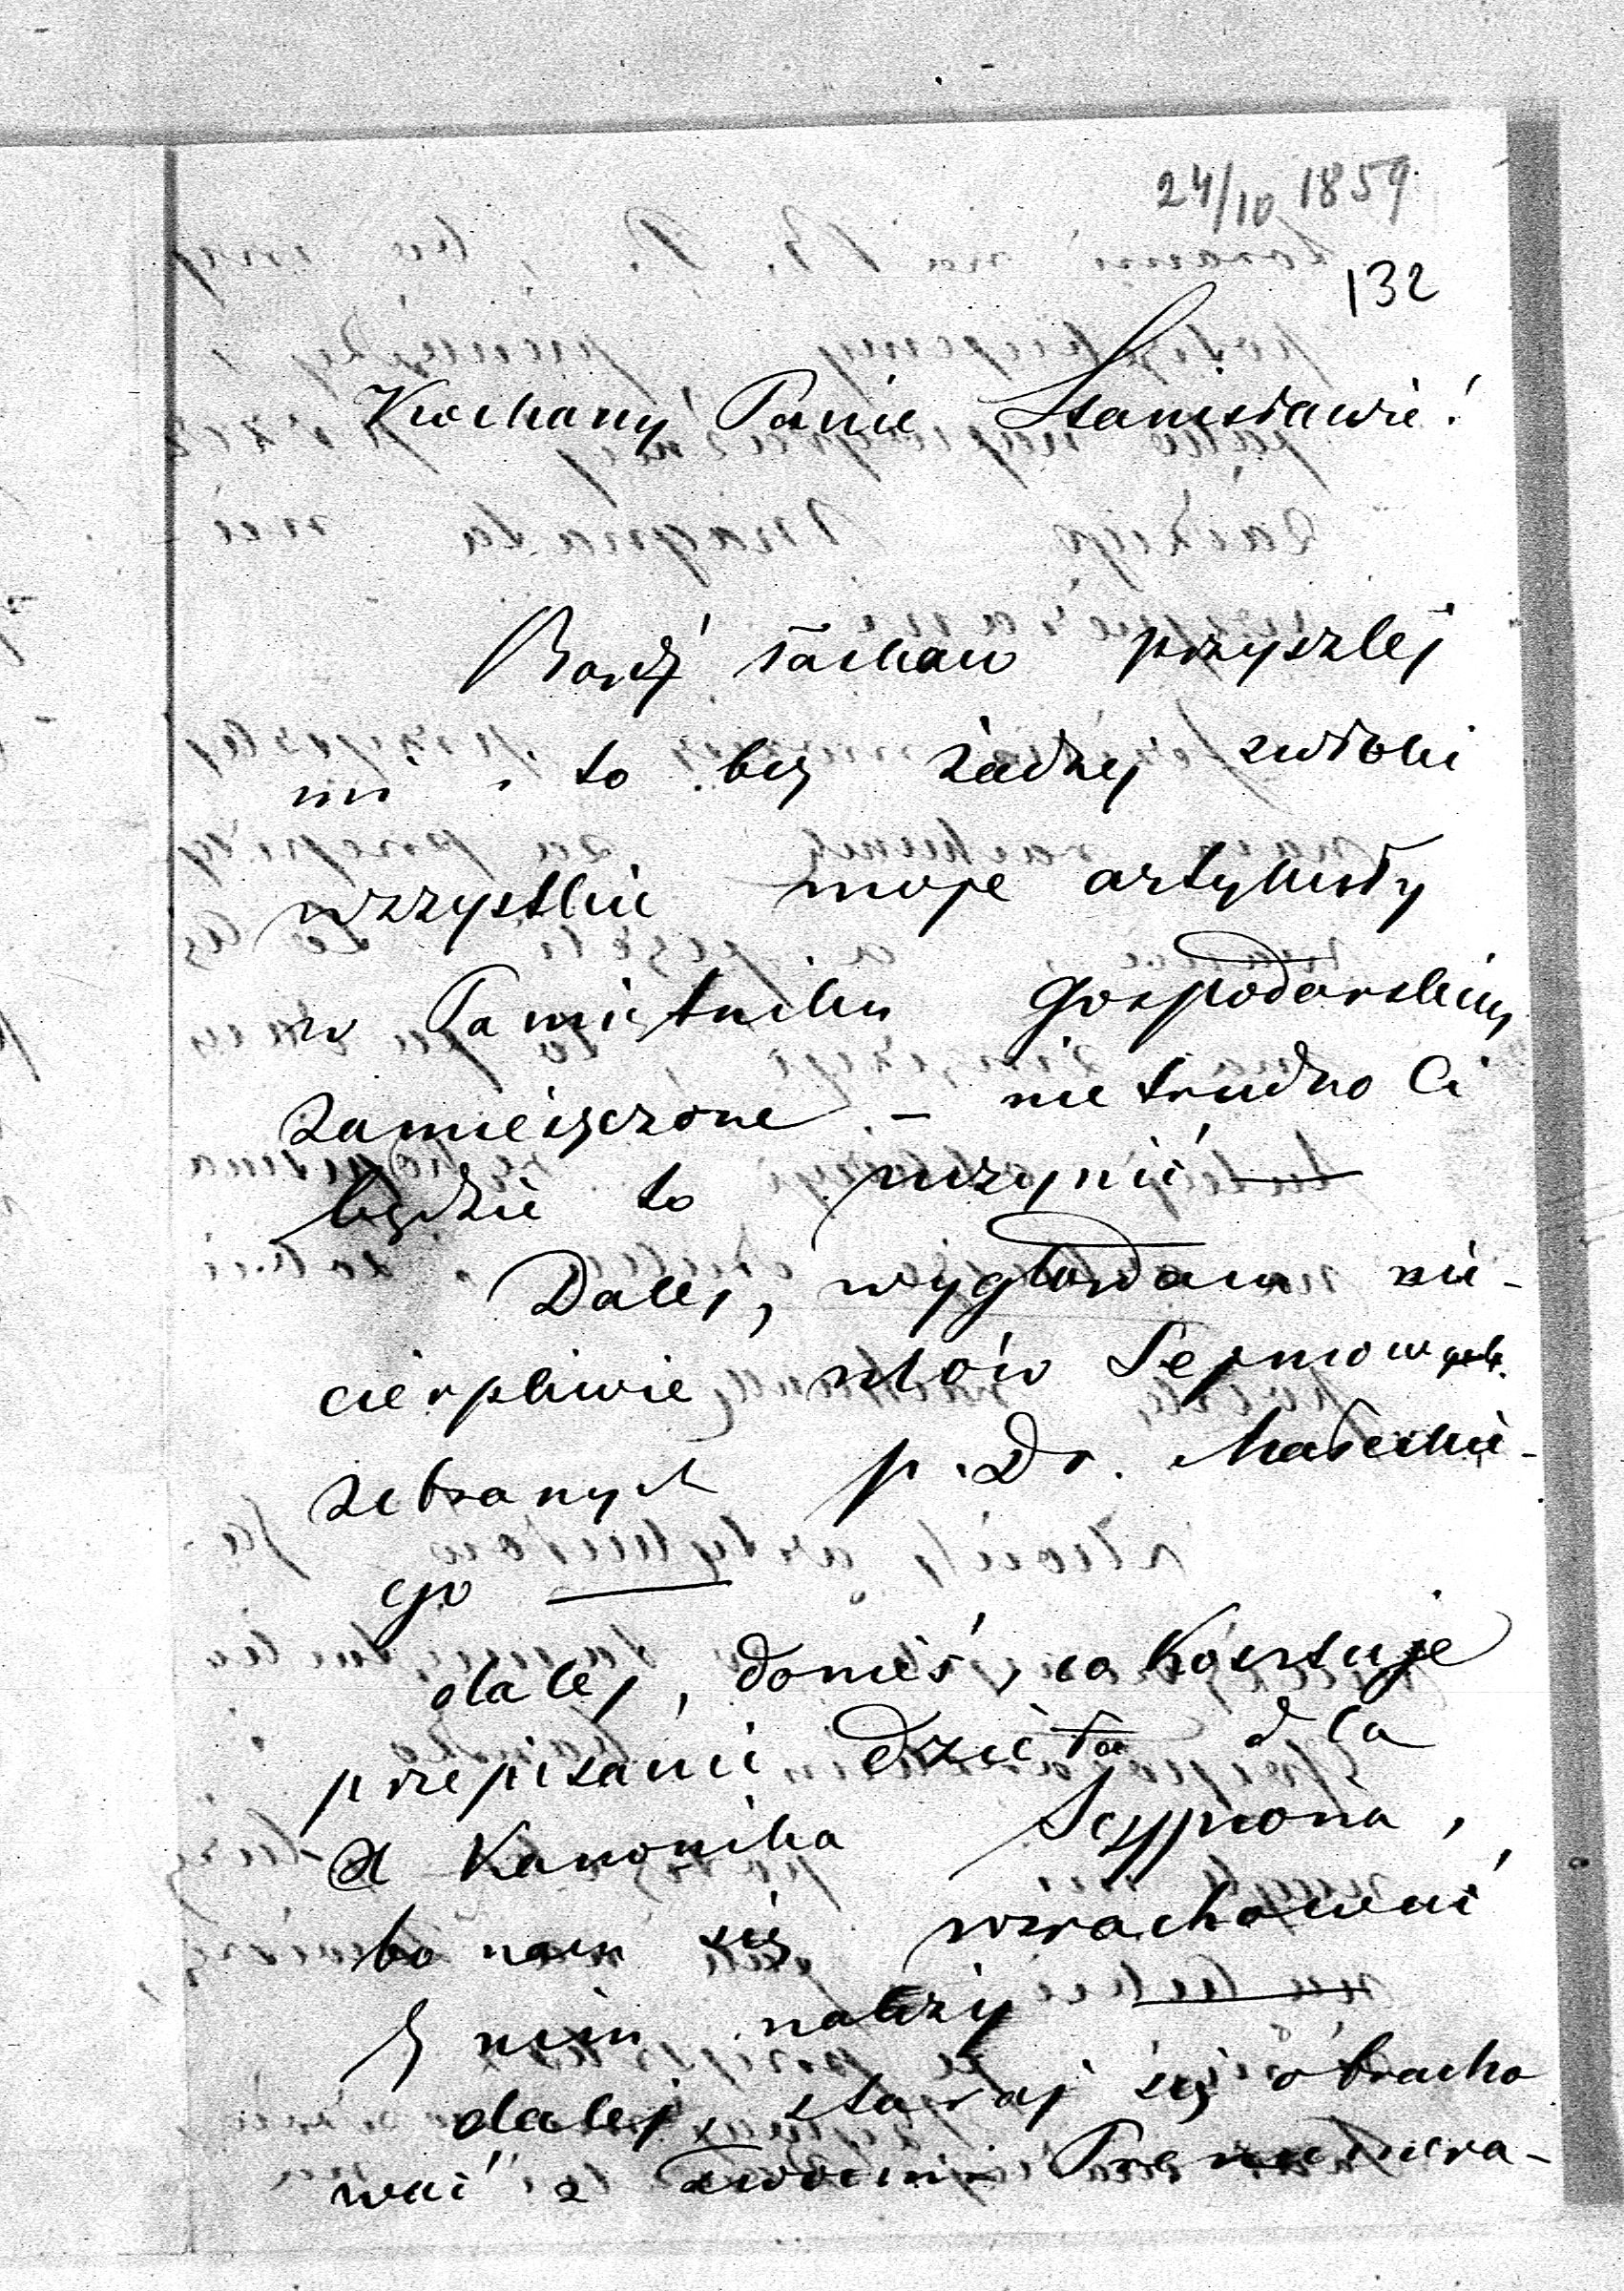 24/10 1859
132
Kochany Panie Stanisławie!
Bądź łaskaw przyszlej
mi i to bez żadnej zwłoki
wszystkie moje artykuły
w Pamiętniku Gospodarskim
zamieszczone – nie trudno Ci
będzie to uczynić —
Dalej, wyglądam nie-
cierpliwie mów Sejmowych
zebranych p. Dr. Małeckie-
go —
dalej, donieś, co kosztuje
przepisanie dzieła dla
X Kanonika Scypiona,
bo nam się wrachować
z nim należy —
dalej, staraj się obracho
wać z Twoimi Prenumera-